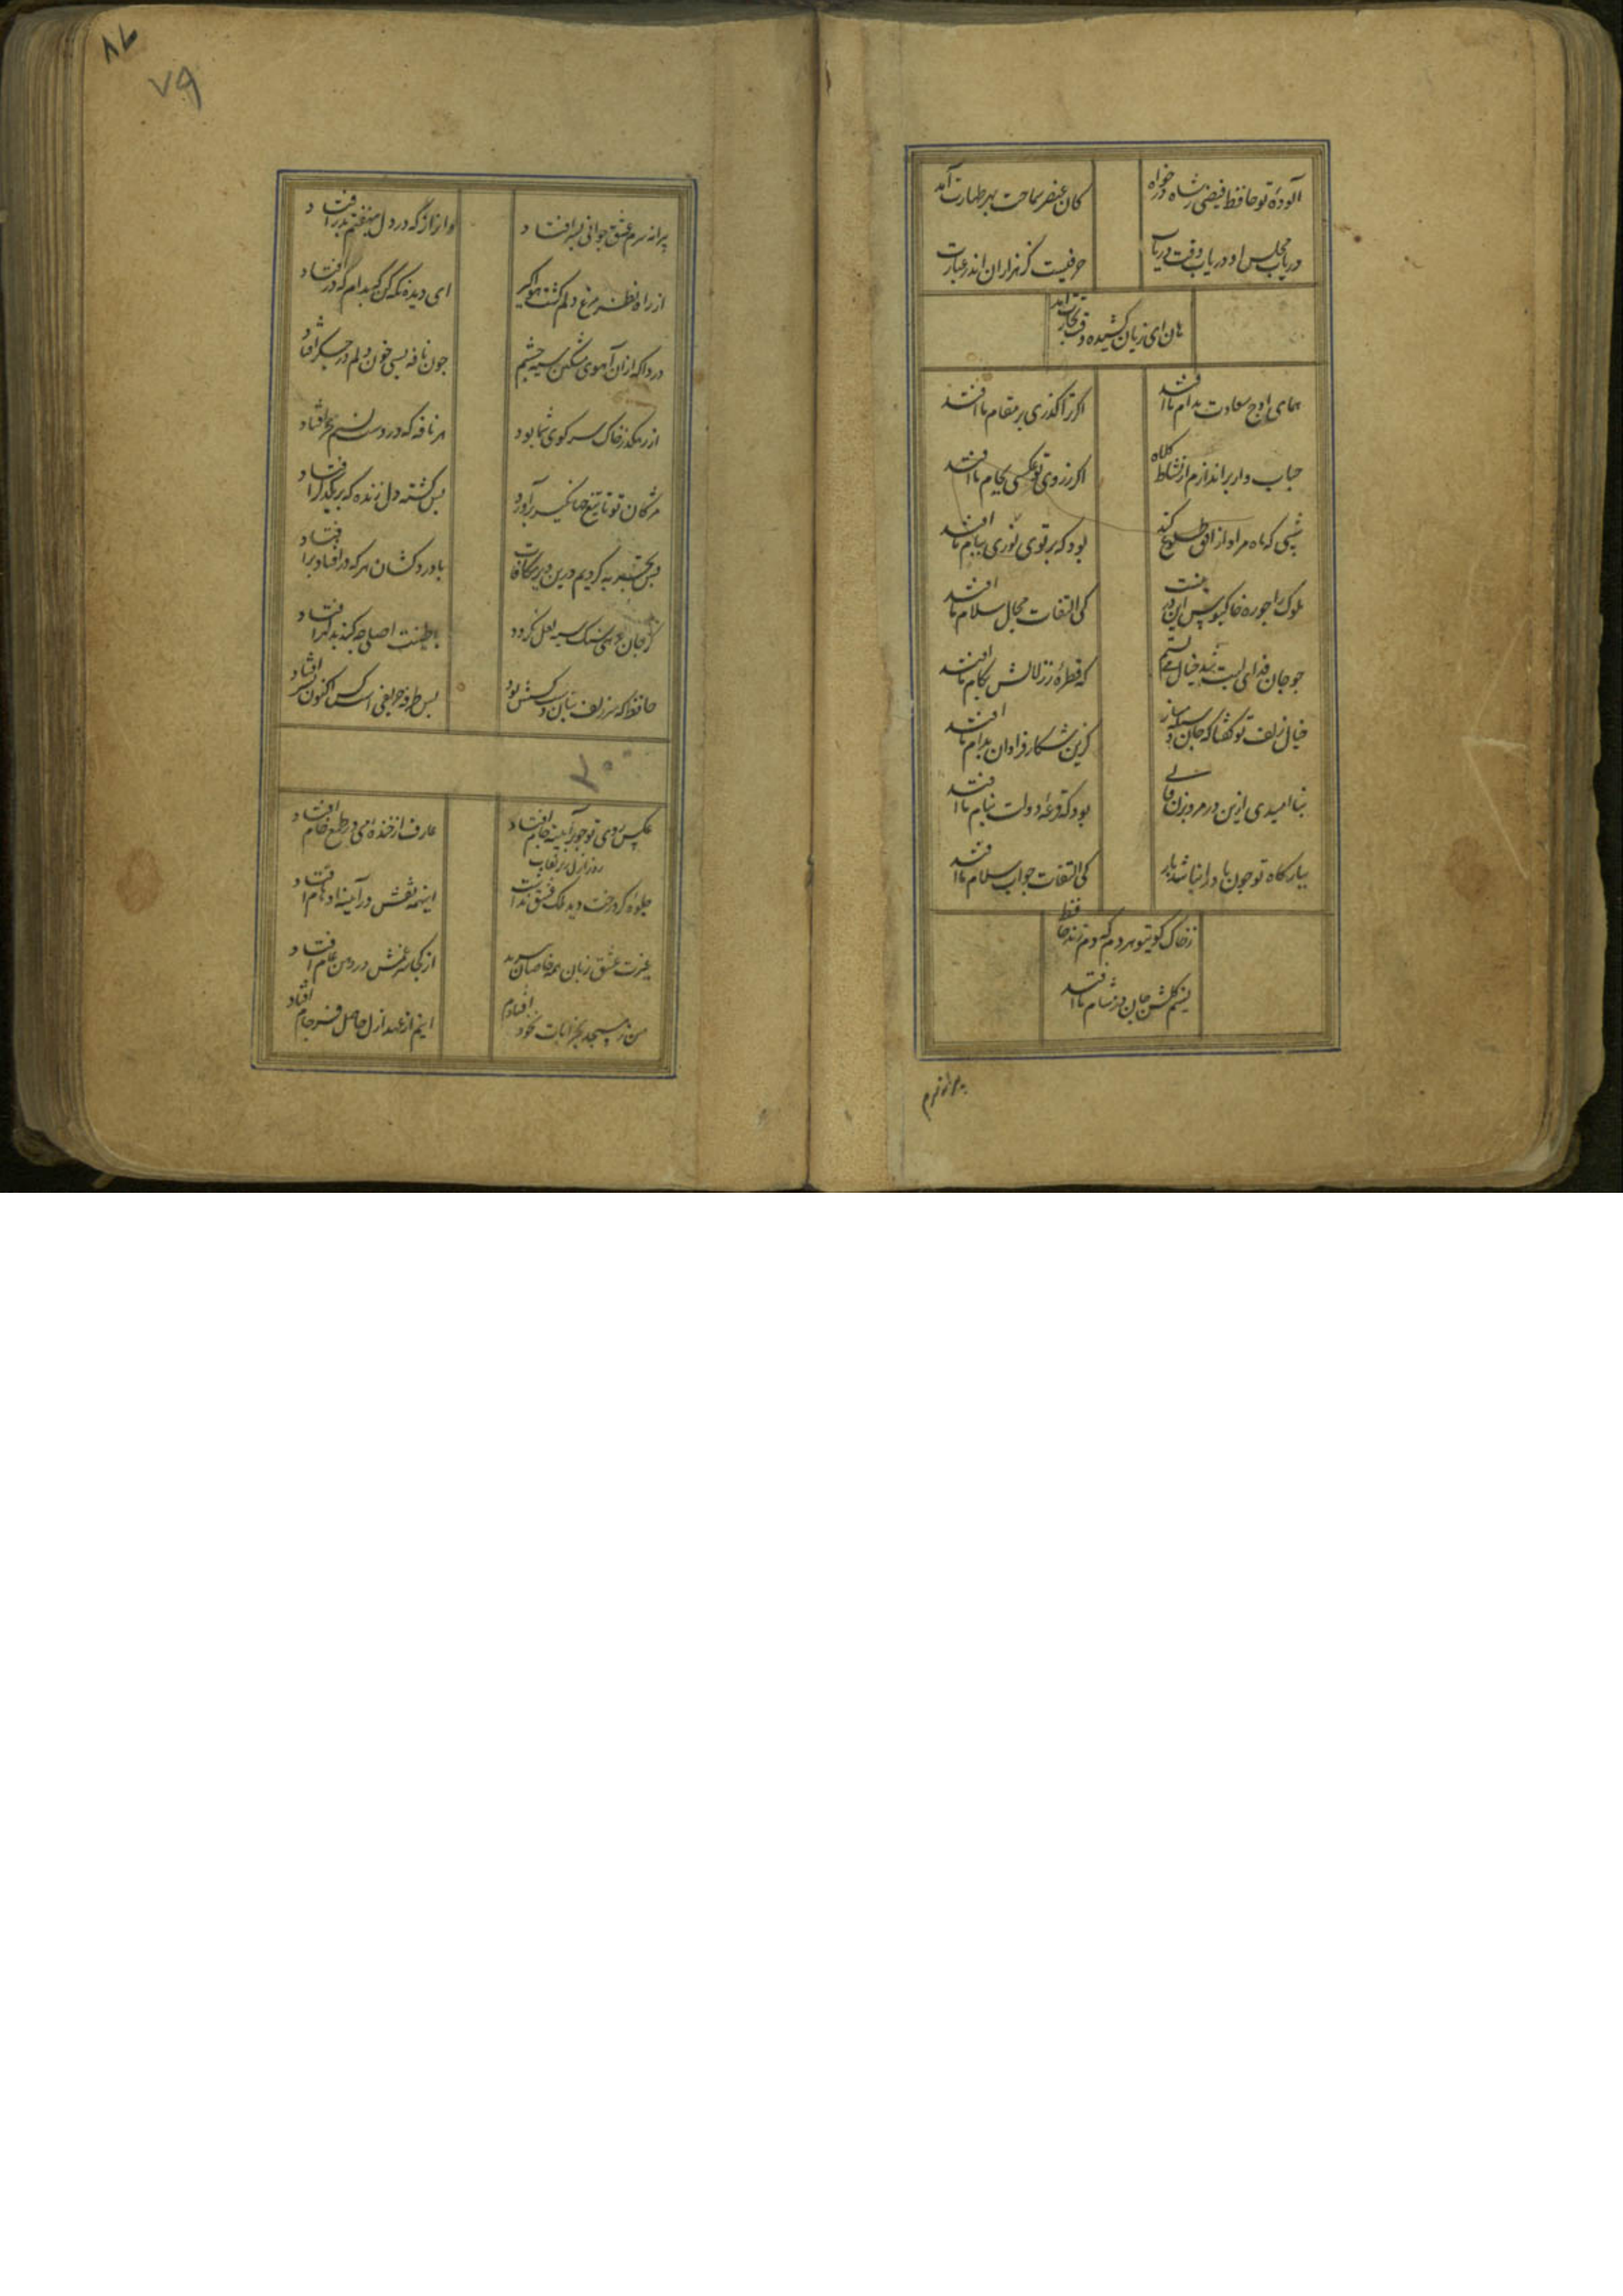 آلودهٔ تو حافظ فیضی ز شاه درخواه
کان عنصر سماحت بهر طهارت آمد
دریاب مجلس او دریاب وقت دریاب
حرفیست کز هزاران اندر عبارت آمد
هان ای زیان کشیده وقت تجارت آمد
همای اوج سعادت بدام ما افتد
اگر ترا گذری بر مقام ما افتد
حباب وار براندازم از نشاط کلاه
اگر ز روی تو عکسی بجام ما افتد
شبی که ماه مراد از افق طلوع کند
بود که پرتوی نوری ببام ما افتد
ملوک را چو ره خاکبوس این در نیست
کی التفات مجال سلام ما افتد
چو جان فدای لبت شد خیال می بستم
که قطرهٔ ز زلالش بکام ما افتد
خیال زلف تو گفتا که جان وسیله مساز
کزین شکار فراوان بدام ما افتد
بنا امیدی ازین در مرو بزن فالی
بود که قرعهٔ دولت بنام ما افتد
ببارگاه تو چون باد را نباشد بار
کی التفات جواب سلام ما افتد
ز خاک کوی تو هر دم که دم زند حافظ
نسیم گلشن جان در مشام ما افتد
پیرانه سرم
۷۹
پیرانه سرم عشق جوانی بسر افتاد
وان راز که در دل بنهفتم بدر افتاد
از راه نظر مرغ دلم گشت هواگیر
ای دیده نگه کن که بدام که در افتاد
دردا که ازان آهوی مشکین سیه چشم
چون نافه بسی خون دلم در جگر افتاد
از رهگذر خاک سر کوی شما بود
هر نافه که در دست نسیم سحر افتاد
مژگان تو تا تیغ جهانگیر برآورد
بس کشته دل زنده که بر یکدگر افتاد
بس تجربه کردیم درین دیر مکافات
با درد کشان هر که در افتاد بر افتاد
گر جان بدهی سنگ سیه لعل نگردد
با طینت اصلی چه کند بد گهر افتاد
حافظ که سر زلف بتان دست کشش بود
بس طرفه حریفی است کش اکنون بسر افتاد
عکس روی تو چو در آینه جام افتاد
عارف از خنده می در طمع خام افتاد
جلوهٔ کرد رخت روز ازل زیر نقاب
اینهمه نقش در آیینه اوهام افتاد
غیرت عشق زبان همه خاصان ببرید
از کجا سر غمش در دهن عام افتاد
من ز مسجد بخرابات نه خود افتادم
اینم از عهد ازل حاصل فرجام افتاد